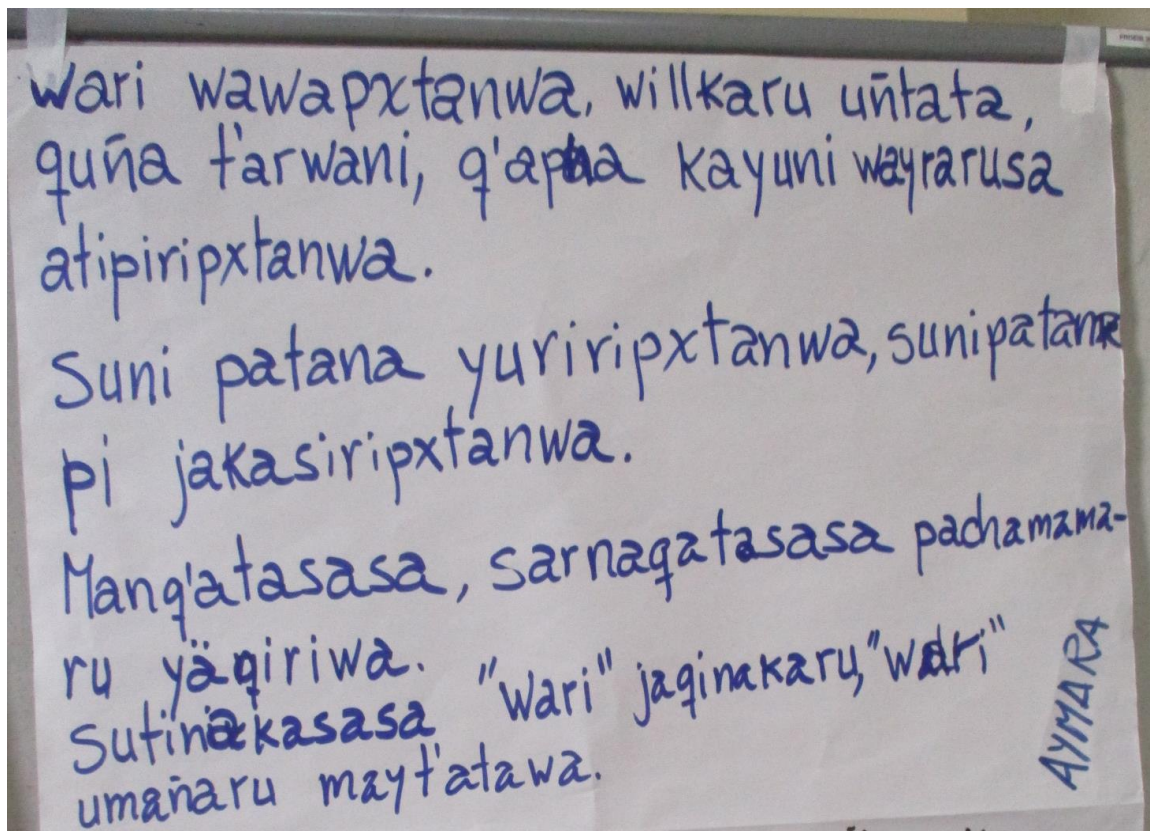 Wari wawapxtanwa, willkaru uñtata,
quña t'arwani, q'apha kayuni wayrarusa
atipiripxtanwa.
Suni patana yuriripxtanwa, suni patan
pi jakasiripxtanwa.
Manq'atasasa, sarnaqatasasa pachamama-
ru yäqiriwa.
Sutinakasasa "Wari" jaqinakaru, "wari"
umañaru mayt'atawa.
AYMARA